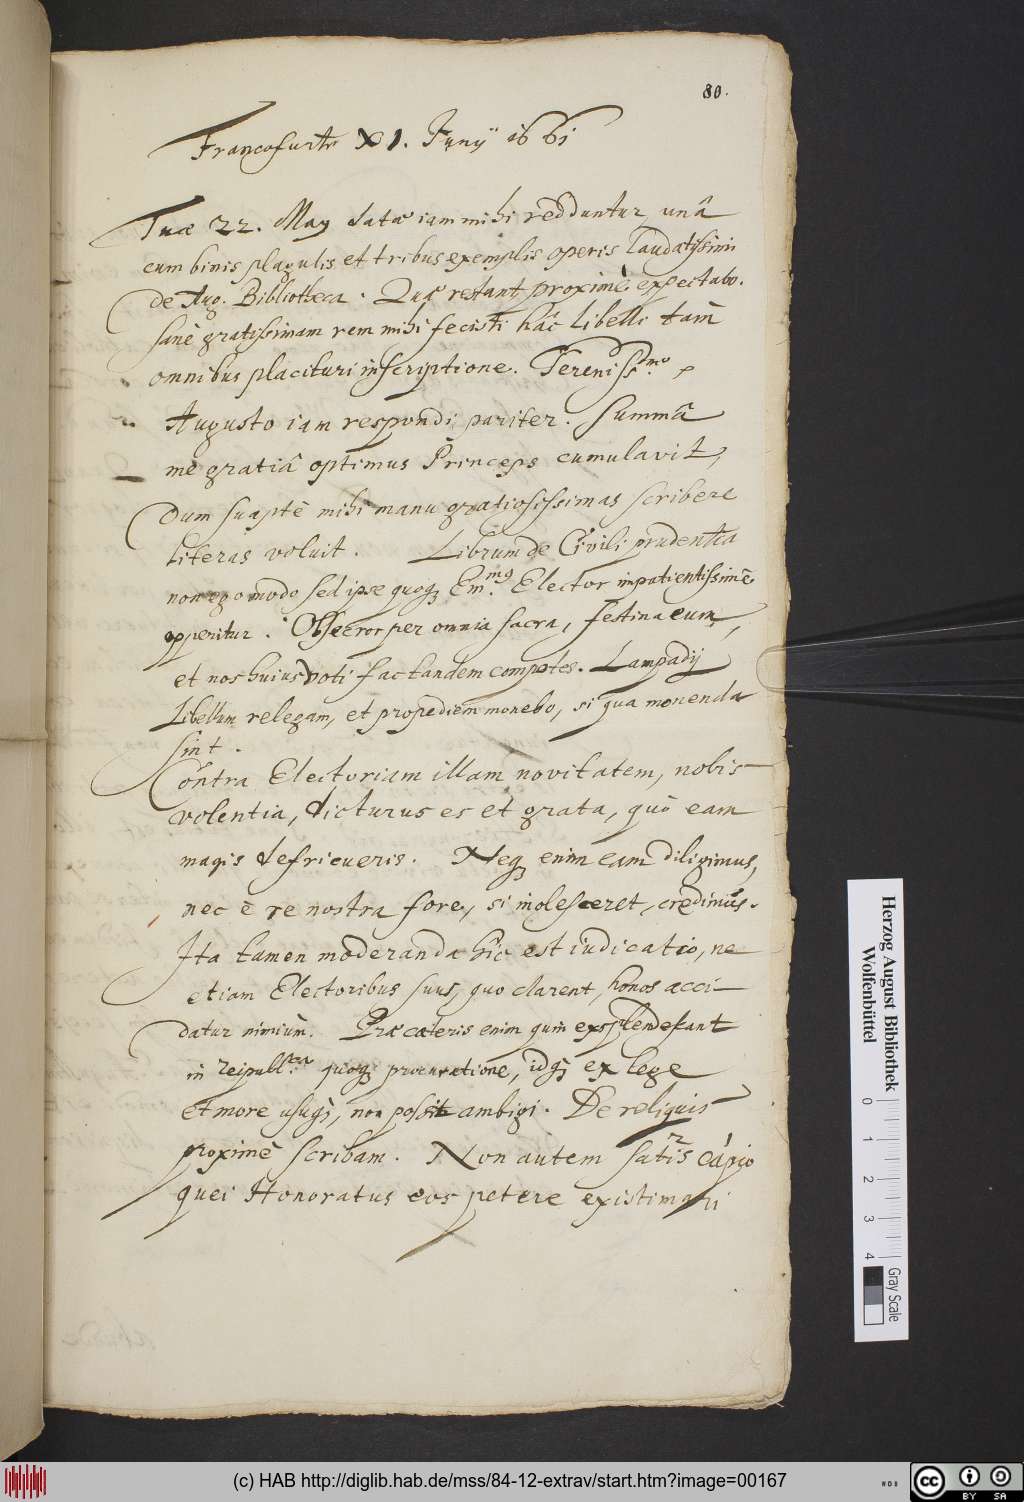 80.
Francofurto XI. Junij 1661
Tuae 22. Maij datae iam mihi redduntur, unâ
cum binis plagulis et tribus exemplis operis laudatissimi
de Aug. Bibliotheca. Quae restant proximè expectabo.
sanè gratissimam rem mihi fecisti hâc libelli tam
omnibus placituri inscriptione. Sereniss.mo
Augusto iam respondi pariter. Summâ
me gratiâ optimus Princeps cumulavit,
Dum suaptè mihi manu gratiosissimas scribere
literas voluit. Librum de Civili prudentia
non ego modo sed ipse quoq; Em.mus Elector impatientissimè
opperitur. Obsecror per omnia sacra, festina eum,
et nos huius voti fac tandem compotes. Lampadij
Libellum relegam, et propediem monebo, si qua monenda
sint.
Contra Electoriam illam novitatem, nobis
volentia, dicturus es et grata, quò eam
magis defricueris. Neq; enim eam diligimus,
nec è re nostra fore, si inolesceret, credimus.
Ita tamen moderanda hîc est iudicatio, ne
etiam Electoribus suus, quo clarent, honos acci-
datur nimiùm. Prae caeteris enim quin exsplendescant
in reipubl. quoq; procuratione, idq; ex lege
et more usuq;, non possit ambigi. De reliquis
proximè scribam. Non autem satis capio
quei Honoratus eos petere existimari
Herzog August Bibliothek
Wolfenbüttel
0 1 2 3 4
Gray Scale
(c) HAB http://diglib.hab.de/mss/84-12-extrav/start.htm?image=00167
cc BY SA